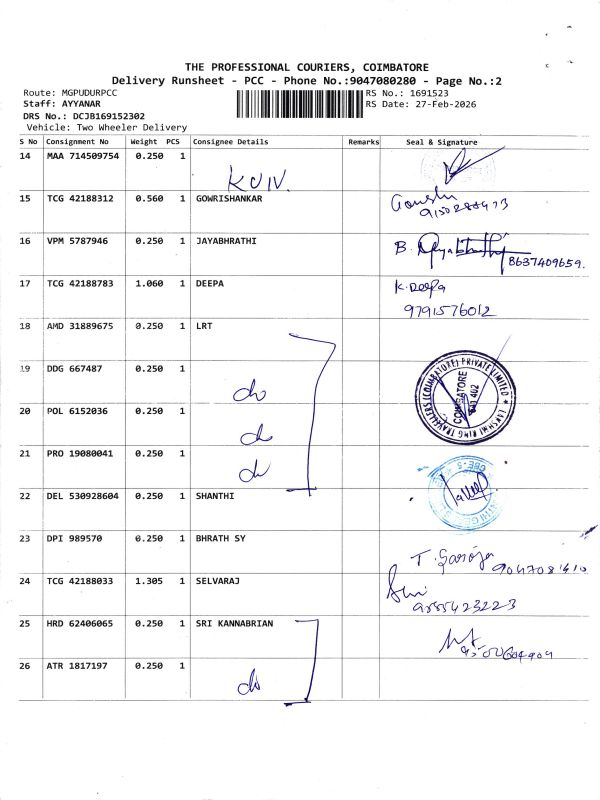 THE PROFESSIONAL COURIERS, COIMBATORE
Delivery Runsheet - PCC - Phone No.:9047080280 - Page No.:2
Route: MGPUDURPCC RS No.: 1691523
Staff: AYYANAR RS Date: 27-Feb-2026
DRS No.: DCJB169152302
Vehicle: Two Wheeler Delivery
S No Consignment No Weight PCS Consignee Details Remarks Seal & Signature
14 MAA 714509754 0.250 1
15 TCG 42188312 0.560 1 GOWRISHANKAR
16 VPM 5787946 0.250 1 JAYABHRATHI B.
8637409659.
17 TCG 42188783 1.060 1 DEEPA K. Deepa
9791576012
18 AMD 31889675 0.250 1 LRT
19 DDG 667487 0.250 1 do
LAKSHMI RING TRAVELLERS (COIMBATORE) PRIVATE LIMITED
COIMBATORE
641 402
20 POL 6152036 0.250 1 do
21 PRO 19080041 0.250 1 do
22 DEL 530928604 0.250 1 SHANTHI
23 DPI 989570 0.250 1 BHRATH SY T. Saroja
24 TCG 42188033 1.305 1 SELVARAJ
9585423223
25 HRD 62406065 0.250 1 SRI KANNABRIAN
26 ATR 1817197 0.250 1 do